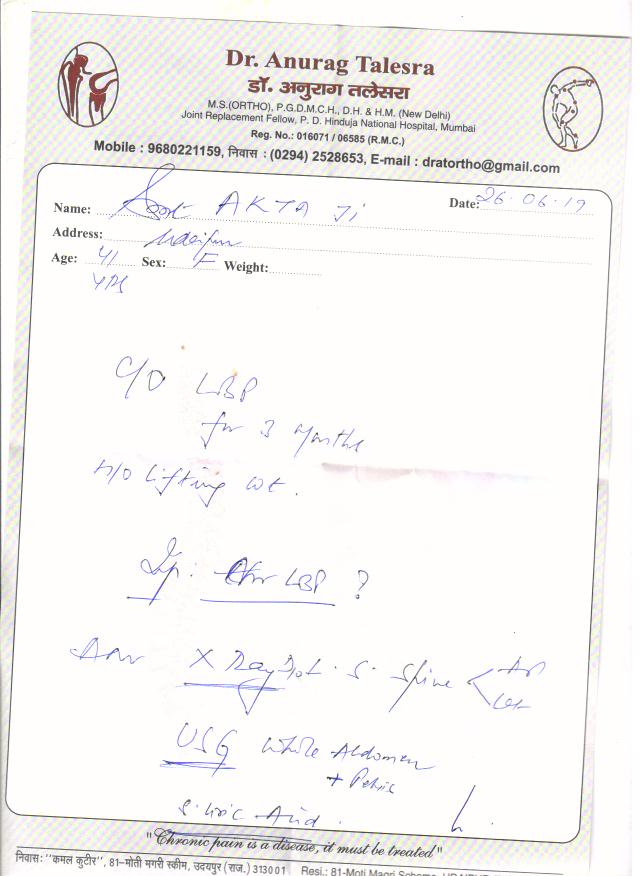 Dr. Anurag Talesra
डॉ. अनुराग तलेसरा
M.S.(ORTHO), P.G.D.M.C.H., D.H. & H.M. (New Delhi)
Joint Replacement Fellow, P. D. Hinduja National Hospital, Mumbai
Reg. No.: 016071 / 06585 (R.M.C.)
Mobile : 9680221159, निवास : (0294) 2528653, E-mail : dratortho@gmail.com
Name: AKTA Ji Date: 26.06.19
Address: Udaipur
Age: 41 Sex: F Weight:
yrs
C/O LBP
for 3 Months
H/O Lifting wt.
Imp: LBP ?
Adv X Ray L. S. Spine < AP
Lat
USG Whole Abdomen
+ Pelvis
S. Uric Acid
"Chronic pain is a disease, it must be treated"
निवास: "कमल कुटीर", 81-मोती मगरी स्कीम, उदयपुर (राज.) 313001 Resi.: 81-Moti Magri Scheme,